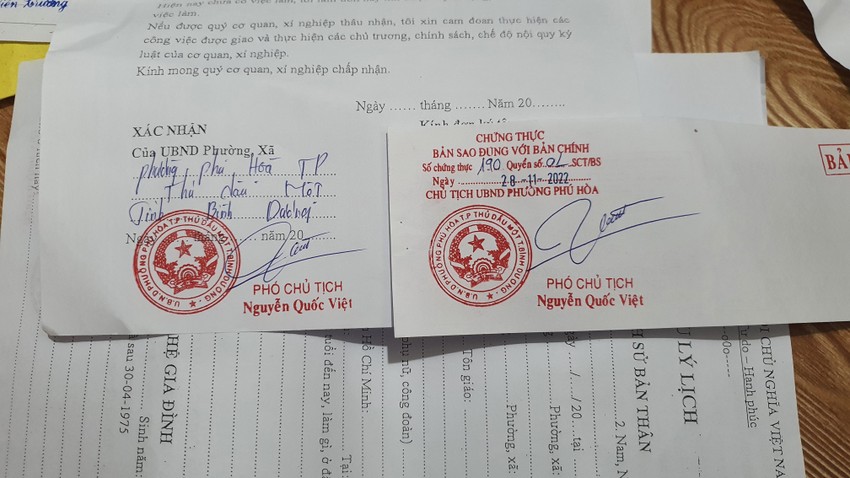 việc làm.
Nếu được quý cơ quan, xí nghiệp thâu nhận, tôi xin cam đoan thực hiện các
công việc được giao và thực hiện các chủ trương, chính sách, chế độ nội quy kỷ
luật của cơ quan, xí nghiệp.
Kính mong quý cơ quan, xí nghiệp chấp nhận.
Ngày ...... tháng ....... Năm 20........
XÁC NHẬN
Của UBND Phường, Xã
phường phú Hòa TP
Thủ Dầu Một
Tỉnh Bình Dương
Ngày tháng ...... năm 20
U.B.N.D PHƯỜNG PHÚ HÒA T.P THỦ DẦU MỘT T.BÌNH DƯƠNG
PHÓ CHỦ TỊCH
Nguyễn Quốc Việt
CHỨNG THỰC
BẢN SAO ĐÚNG VỚI BẢN CHÍNH
Số chứng thực 190 Quyển số 02 SCT/BS
Ngày 28 -11- 2022
CHỦ TỊCH UBND PHƯỜNG PHÚ HÒA
U.B.N.D PHƯỜNG PHÚ HÒA T.P THỦ DẦU MỘT T.BÌNH DƯƠNG
PHÓ CHỦ TỊCH
Nguyễn Quốc Việt
BẢ
CHỦ NGHĨA VIỆT NA
do – Hạnh phúc
LÝ LỊCH
SỬ BẢN THÂN
2. Nam, N
Phường, xã:
ngày ..../..../ 20 ..tại
Phường, xã:
Tôn giáo:
phụ nữ, công đoàn)
Hồ Chí Minh:
Tại:
tuổi đến nay, làm gì, ở đâ
HỆ GIA ĐÌNH
Sinh năm:
sau 30-04-1975